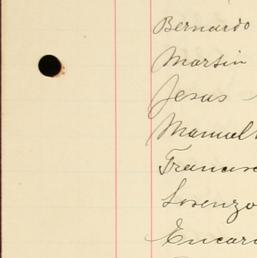 Bernardo
Martin
Jesus
Manuel
Francisc
Lorenzo
Encar